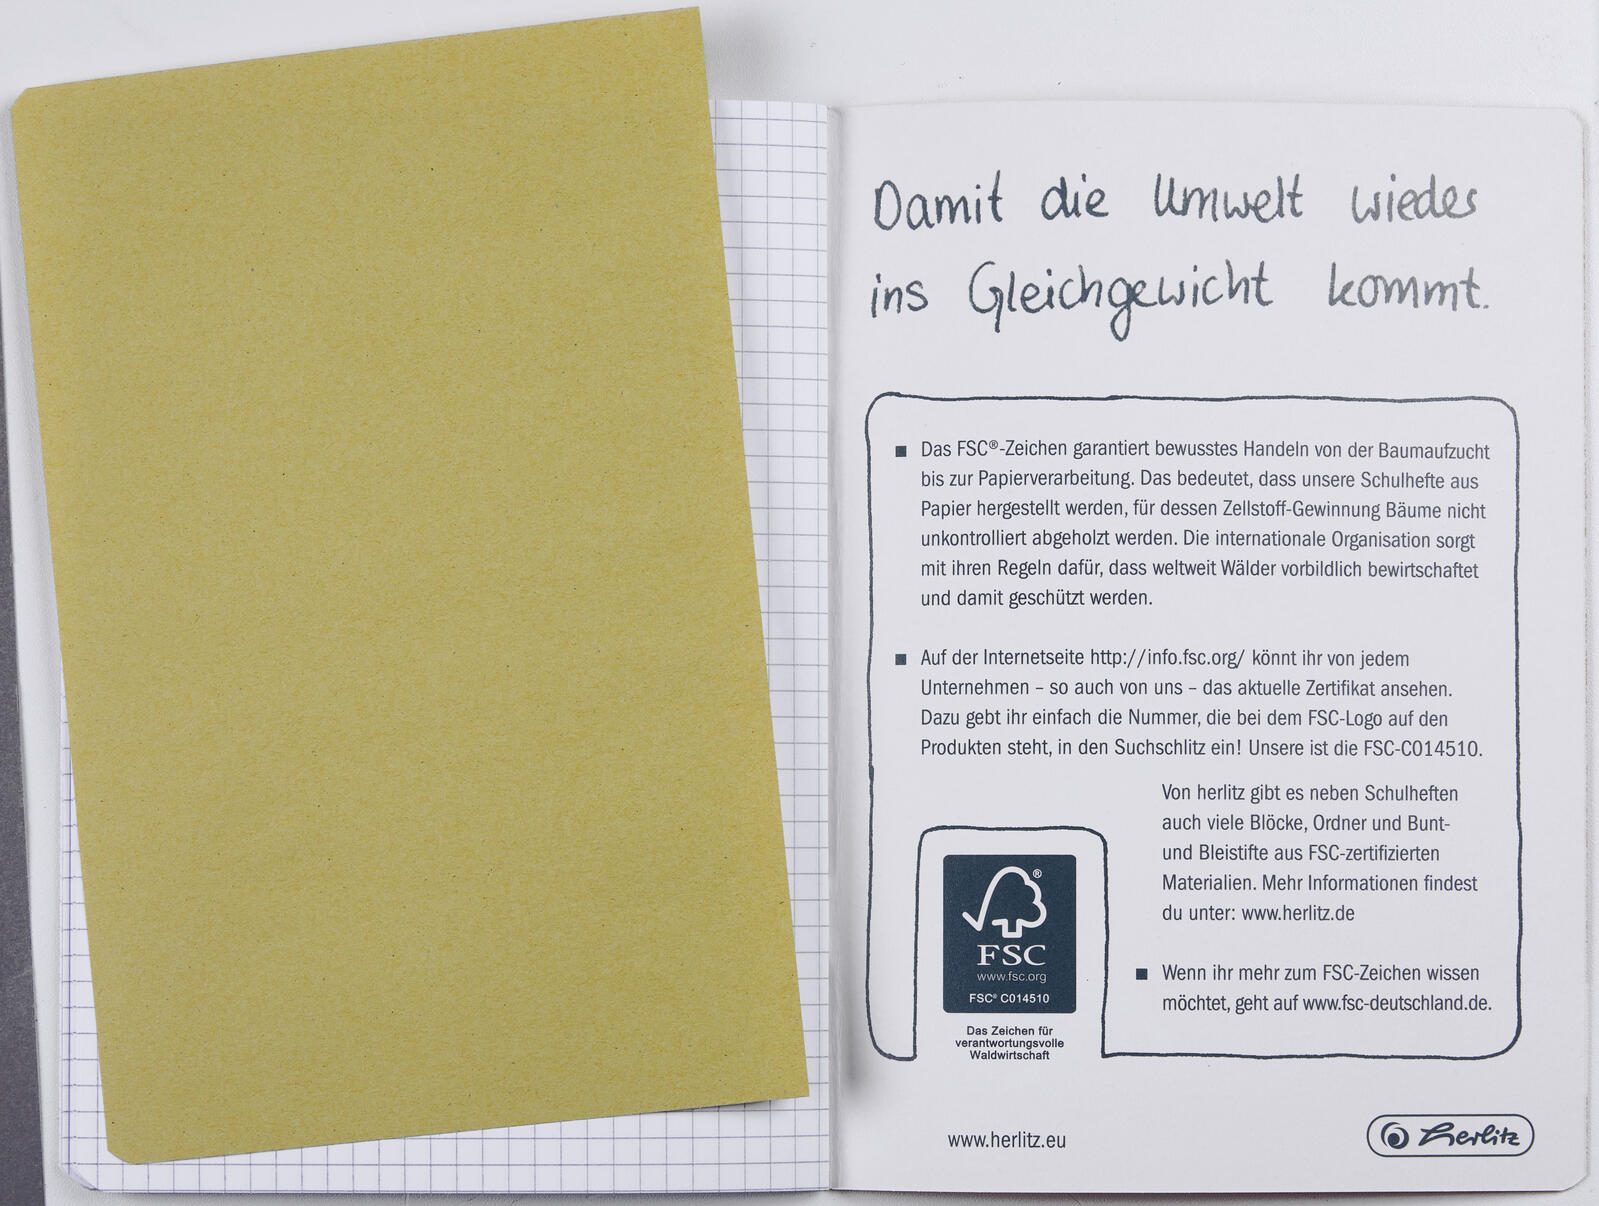 Damit die Umwelt wieder
ins Gleichgewicht kommt.
■ Das FSC®-Zeichen garantiert bewusstes Handeln von der Baumaufzucht
bis zur Papierverarbeitung. Das bedeutet, dass unsere Schulhefte aus
Papier hergestellt werden, für dessen Zellstoff-Gewinnung Bäume nicht
unkontrolliert abgeholzt werden. Die internationale Organisation sorgt
mit ihren Regeln dafür, dass weltweit Wälder vorbildlich bewirtschaftet
und damit geschützt werden.
■ Auf der Internetseite http://info.fsc.org/ könnt ihr von jedem
Unternehmen – so auch von uns – das aktuelle Zertifikat ansehen.
Dazu gebt ihr einfach die Nummer, die bei dem FSC-Logo auf den
Produkten steht, in den Suchschlitz ein! Unsere ist die FSC-C014510.
Von herlitz gibt es neben Schulheften
auch viele Blöcke, Ordner und Bunt-
und Bleistifte aus FSC-zertifizierten
Materialien. Mehr Informationen findest
du unter: www.herlitz.de
■ Wenn ihr mehr zum FSC-Zeichen wissen
möchtet, geht auf www.fsc-deutschland.de.
®
FSC
www.fsc.org
FSC® C014510
Das Zeichen für
verantwortungsvolle
Waldwirtschaft
www.herlitz.eu
herlitz